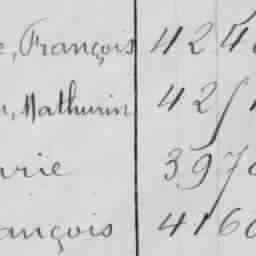 François 424
Mathurin 42
rie 397
ançois 4160